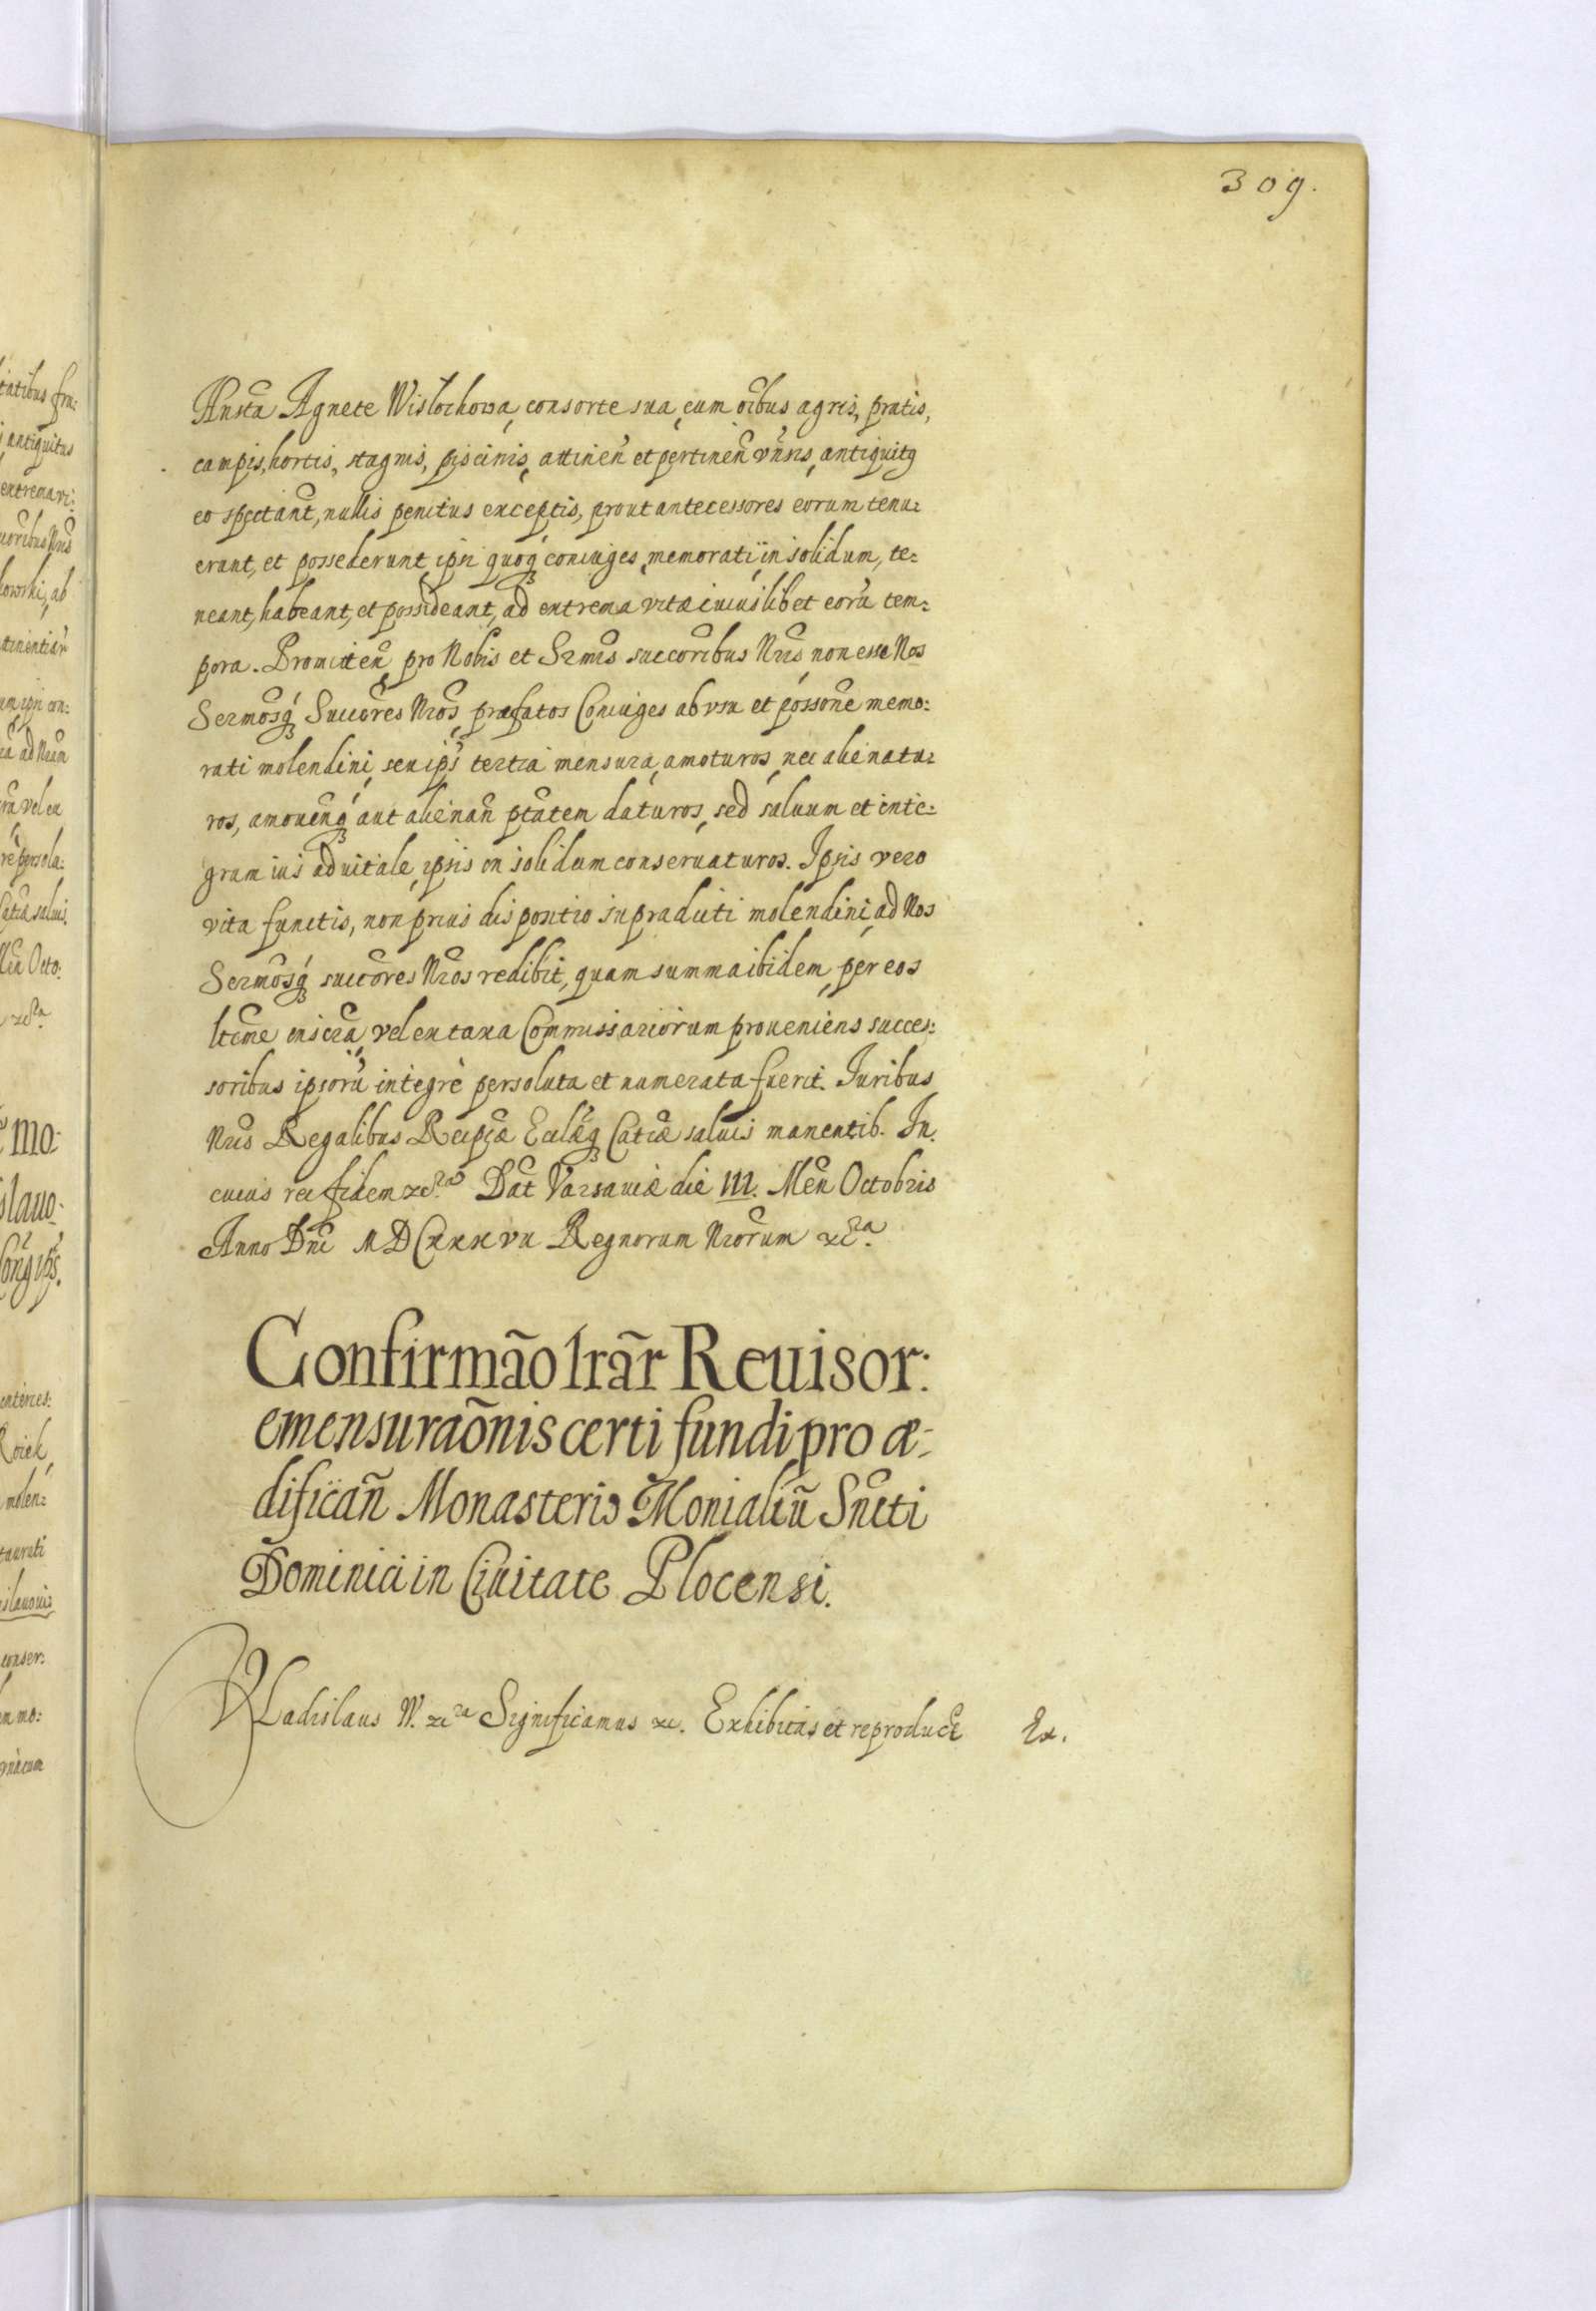 309.
Hnsta Agnete Wislochowa, consorte sua, cum oĩbus agris, pratis,
campis, hortis, stagnis, piscinis, attineñ et pertineñ vnĩsis, antiquitq
eo spectañt, nullis penitus exceptis, prout antecessores eorum tenu:
erunt, et possederunt, ipsi quoqȝ coniuges, memorati, in solidum, te:
neant, habeant, et possideant, ad extrema vitæ cuiuslibet eorũ tem:
pora. Promitteñ pro Nobis et Sermĩs succorĩbus Nrĩs, non esse Nos
Sermõsqȝ Succõres Nrõs, præfatos Coniuges ab vsu et possõne memo:
rati molendini, seu ips̃ tertia mensura, amoturos, nec alienatu:
ros, amoueñqȝ aut alienañ ptãtem daturos, sed saluum et inte:
grum ius aduitale, ipsis in solidum conseruaturos. Ipsis vero
vita functis, non prius dispositio supradicti molendini, ad Nos
Sermõsqȝ succõres Nrõs redibit, quam summa ibidem, per eos
ltĩme inscrã, vel ex taxa Commissariorum proueniens succes:
soribus ipsorũ integrè persoluta et numerata fuerit. Iuribus
Nrĩs Regalibus Reipcæ̃ Ecclæ̃qȝ Catcæ̃ saluis manentib. In
cuius rei fidem &c̃ra Dat̃ Varsauiæ die III. Meñ Octobris
Anno Dnĩ MDCXXXVII Regnorum Nrõrum &c̃ra
Confirmão lrãr Reuisor:
emensuraõnis certi fundi pro æ:
dificañ Monasterio Monialiũ Snc̃ti
Dominici in Ciuitate Plocensi.
Vladislaus IV. &cra Significamus &c. Exhibitas et reproduct̃ Ex.